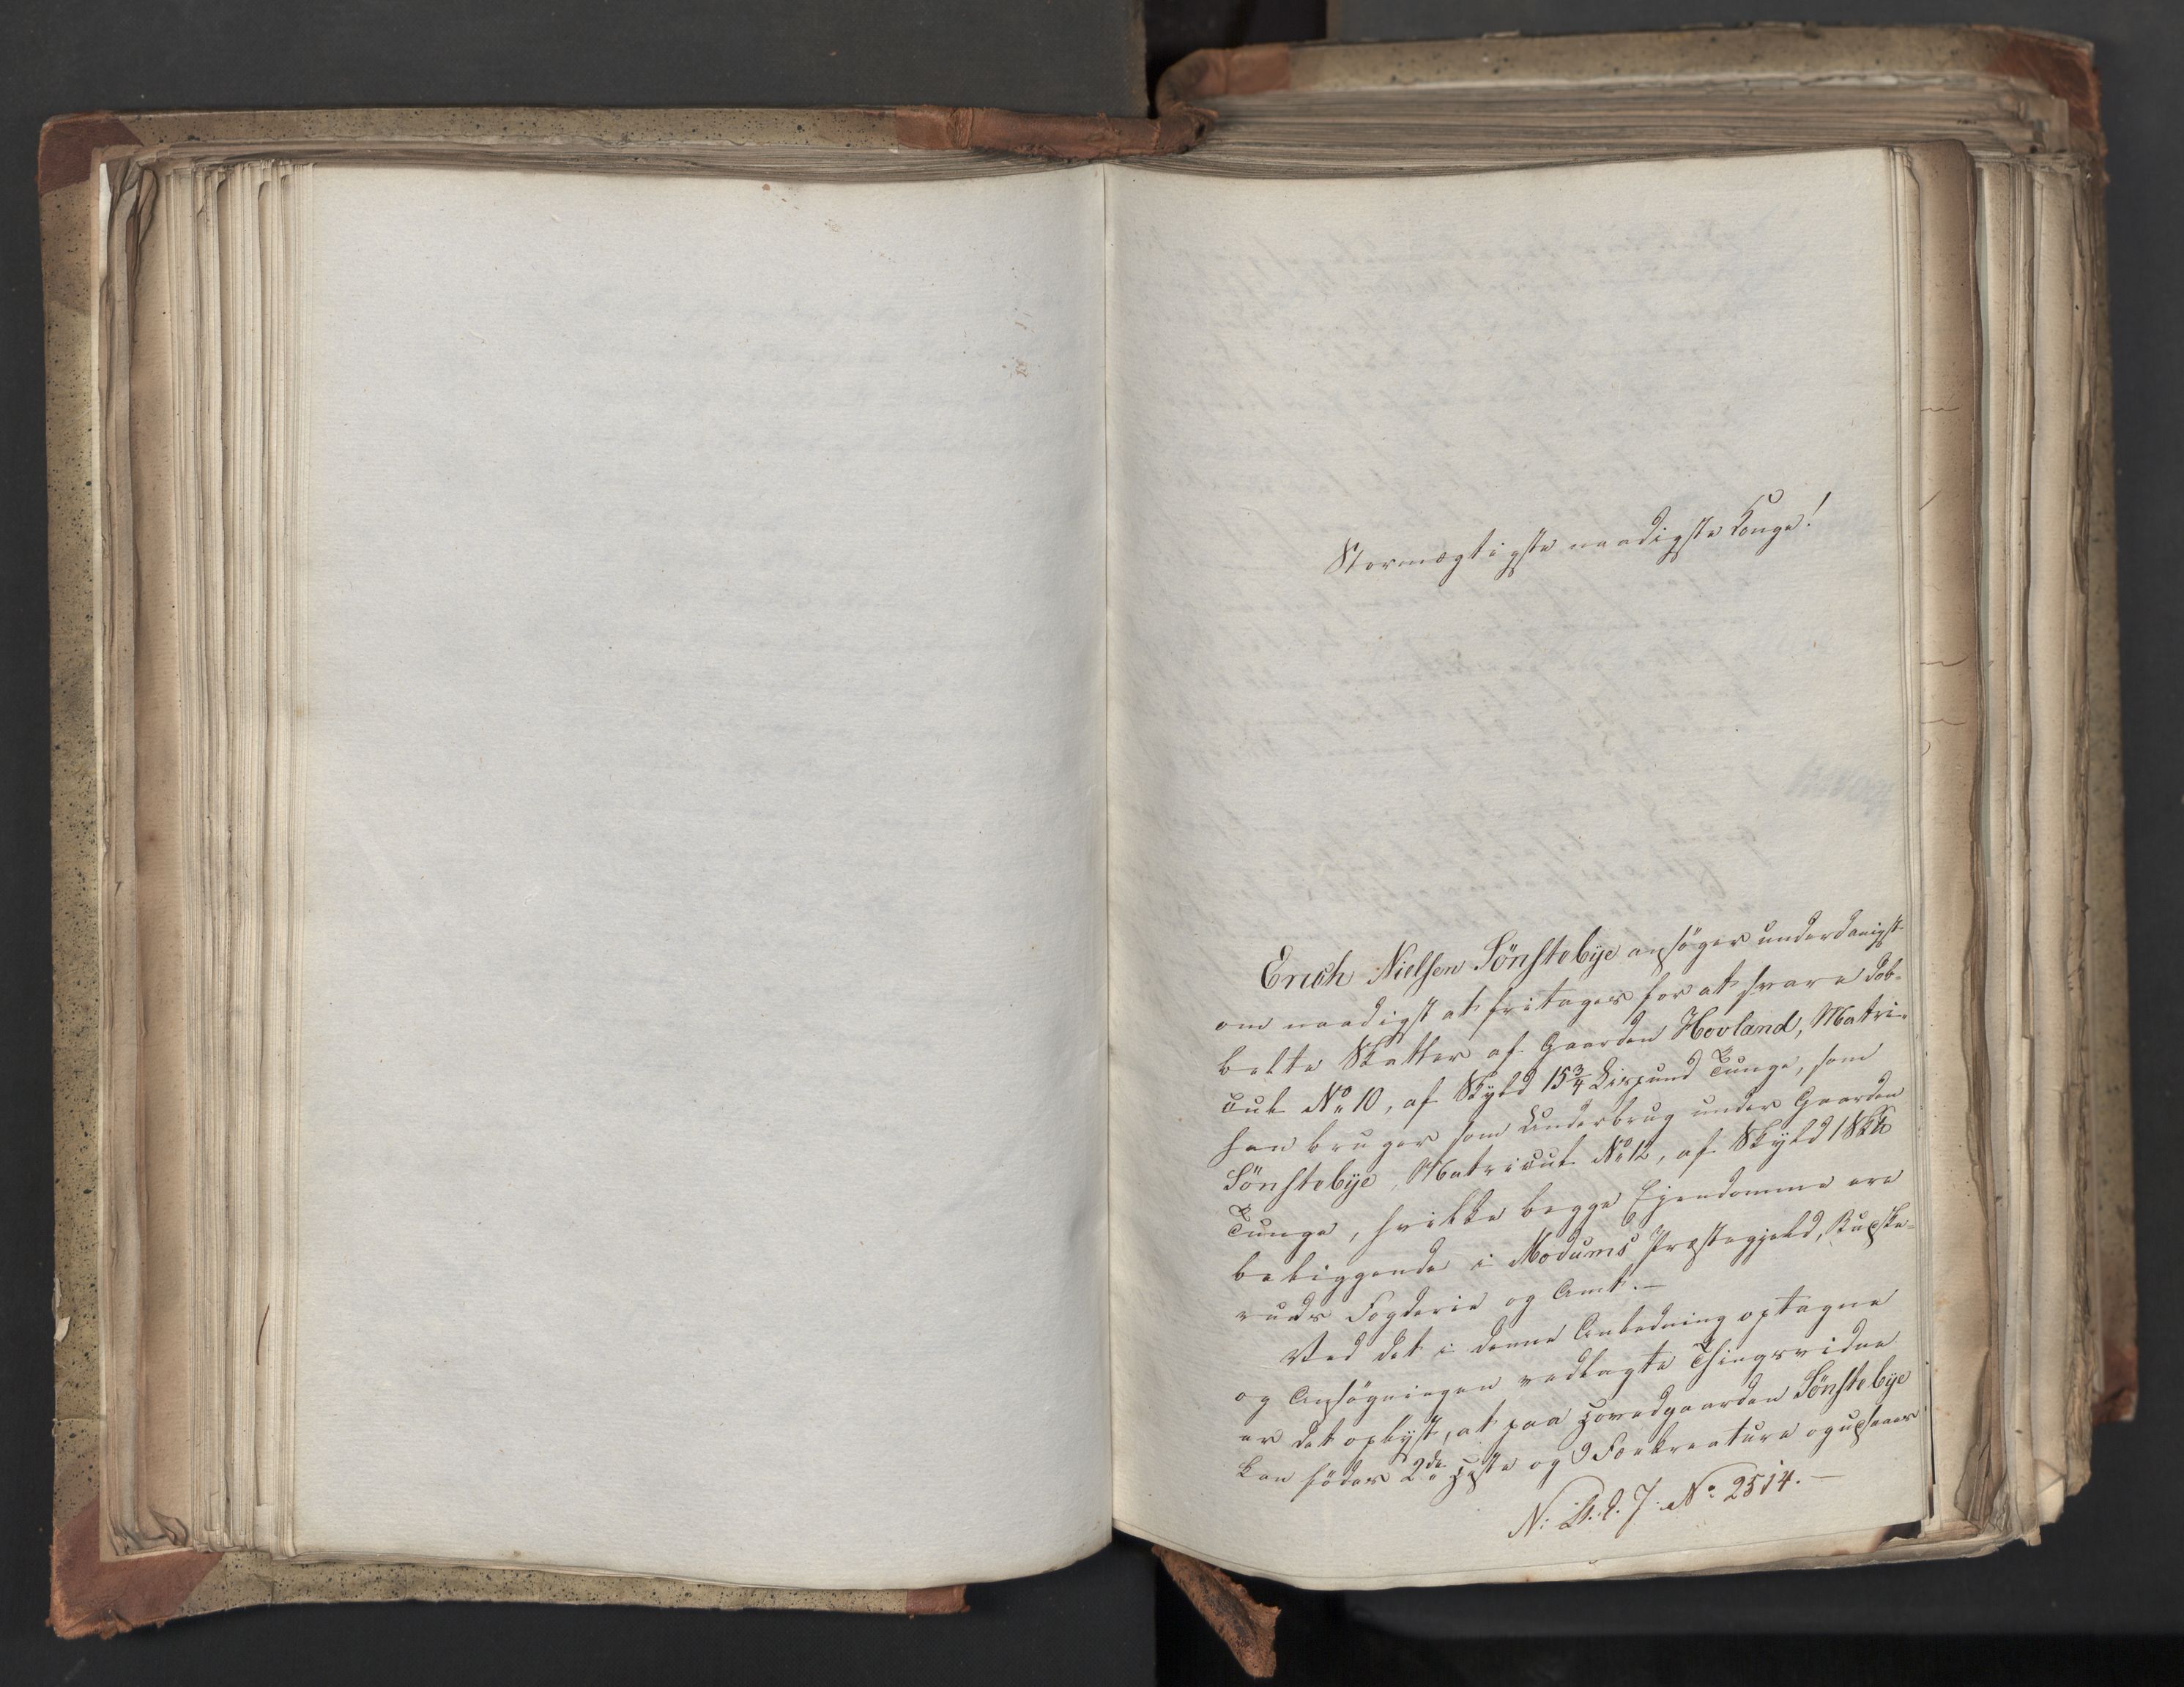 Stormægtigste naadigste Konge!
Erich Nielsen Sönstebÿe ansöger underdanigst
om naadigst at fritages for at svare dob-
belte Skatter af Gaarden Hovland, Matri-
cul No 10, af Skyld 15 3/4 Lispund Tunge, som
han bruger som Underbrug under Gaarden
Sönstebÿe, Matricul No 12, af Skyld 1 Sk℔
Tunge, hvilke begge Ejendomme ere
beliggende i Modums Præstegjeld, Buske-
ruds Fogderie og Amt.-
Ved det i denne Anledning optagne
og Ansögningen vedlagte Thingsvidne
er det oplyst, at paa Hovedgaarden Sönstebÿe
kan födes 2de Heste og 9 Foekreature og udsaaes
No 2514.-